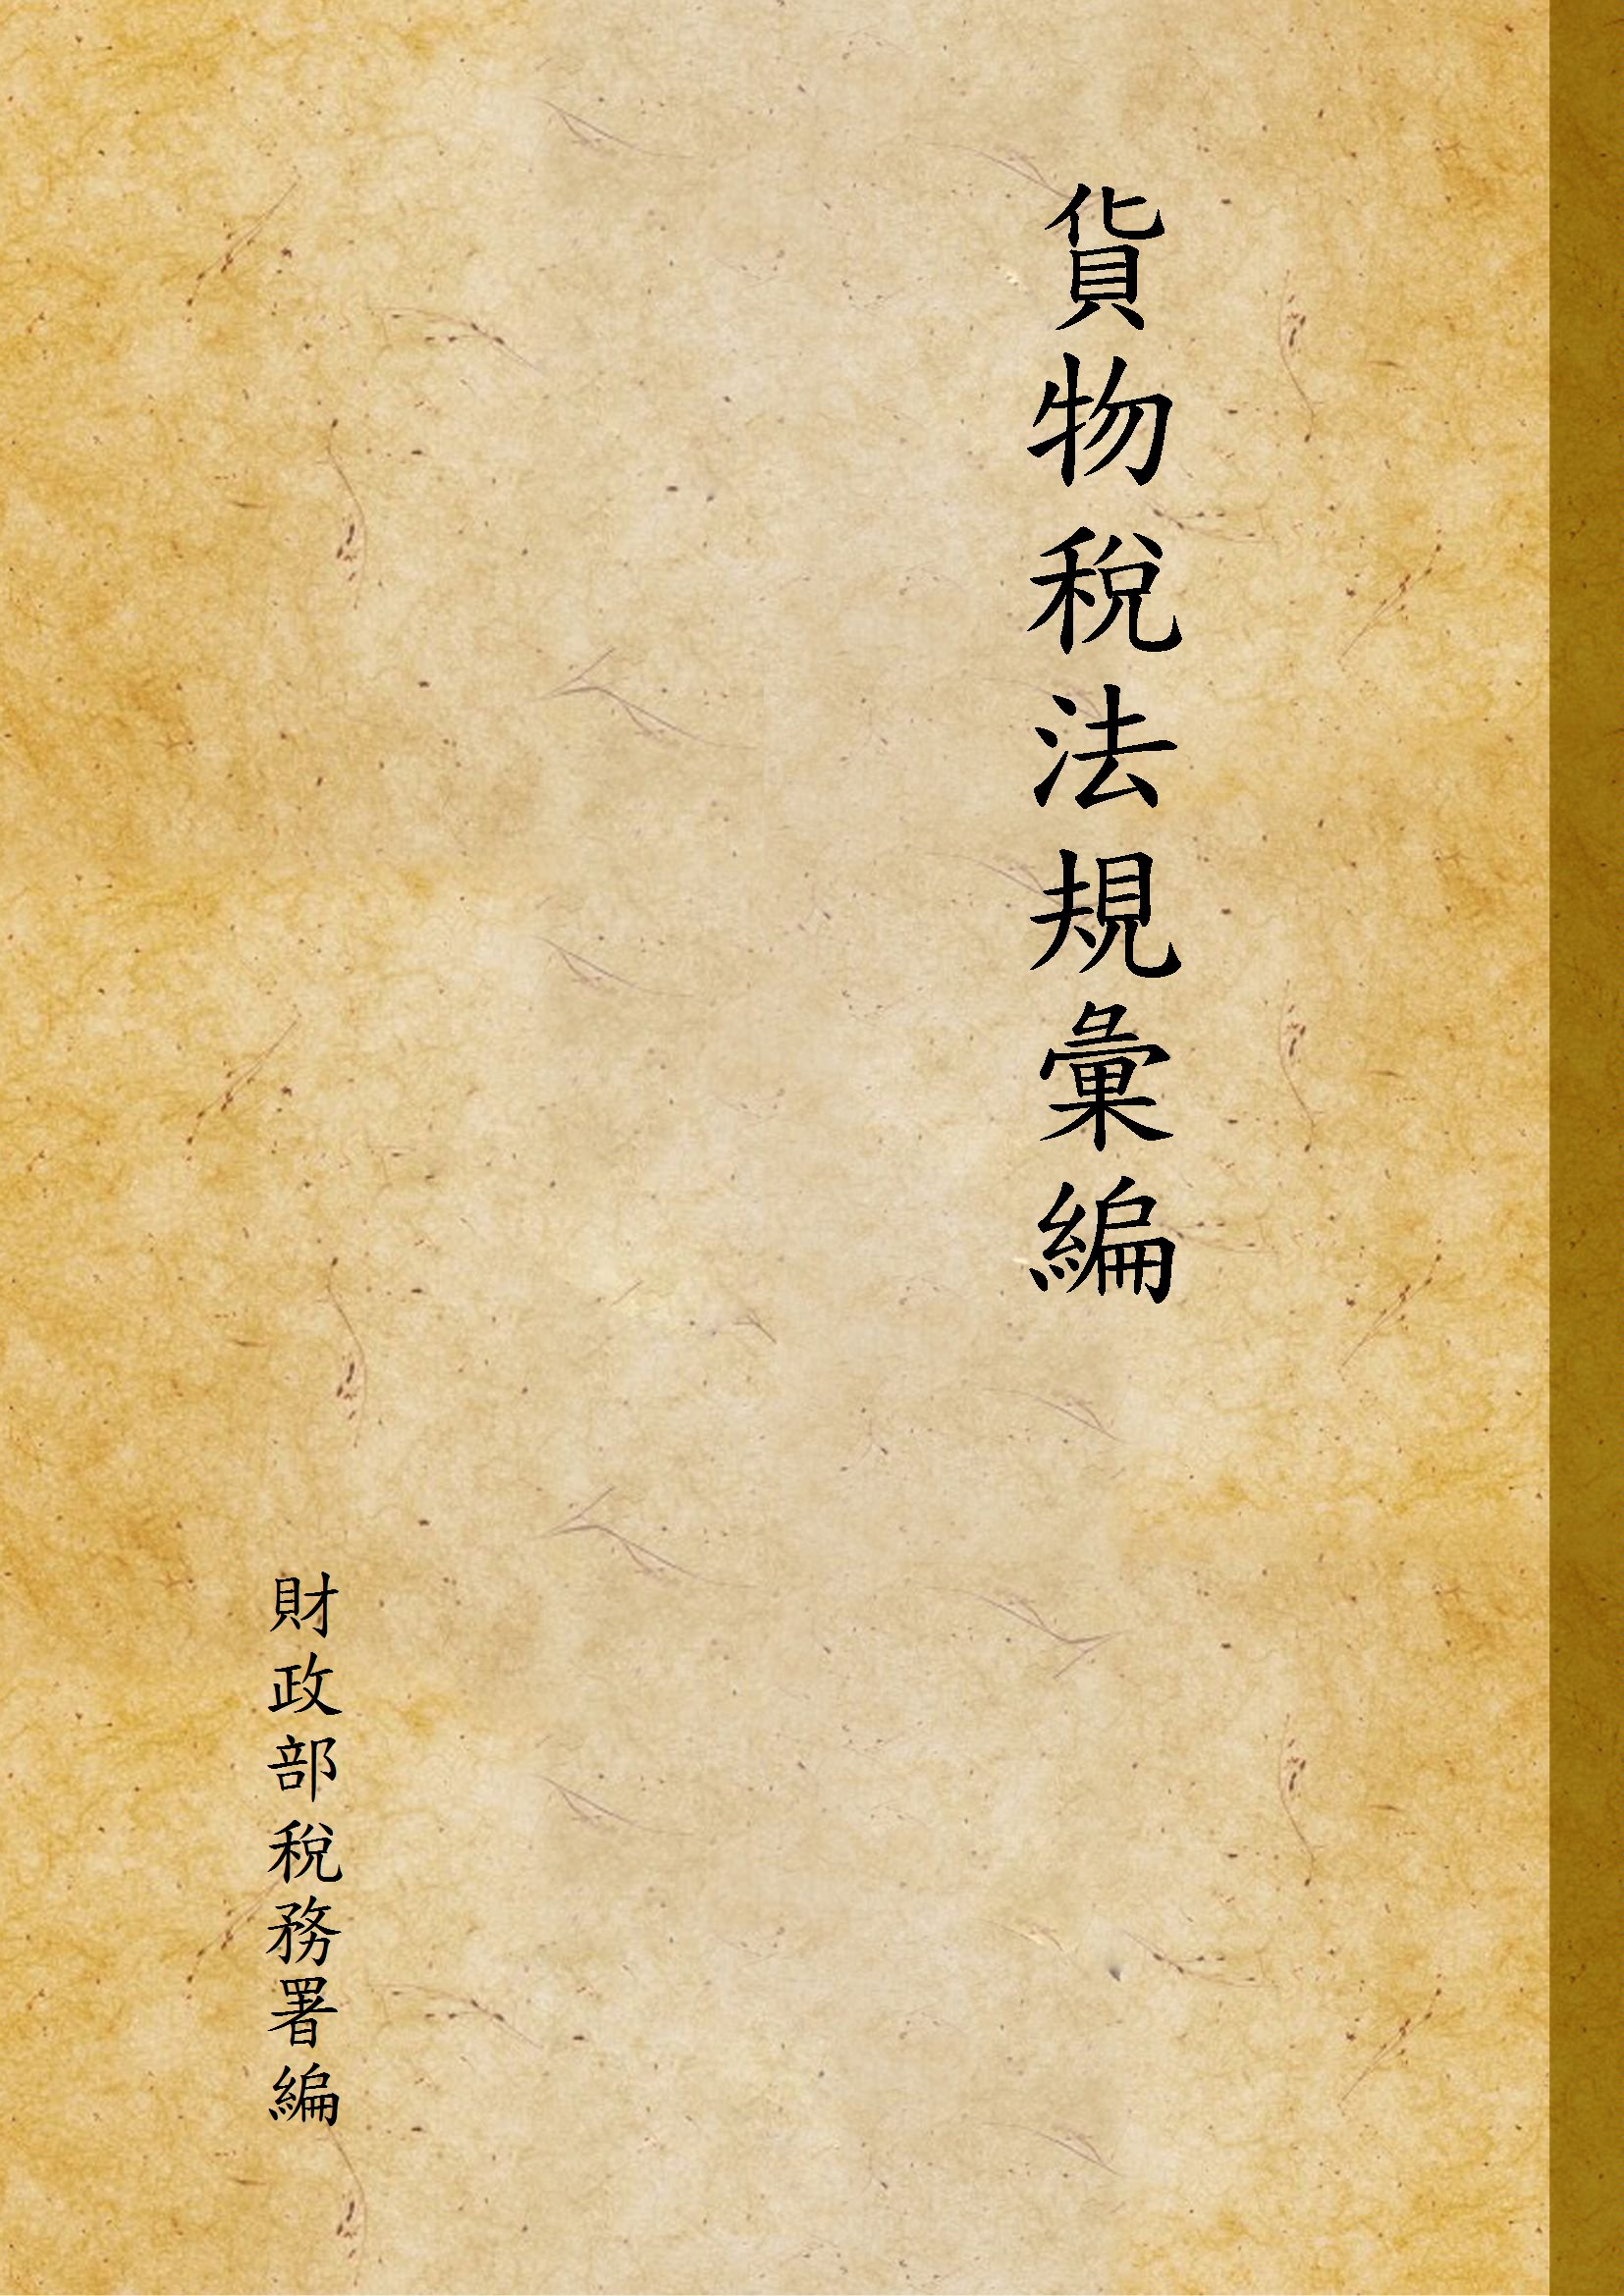 貨物稅法規彙編
財政部稅務署編